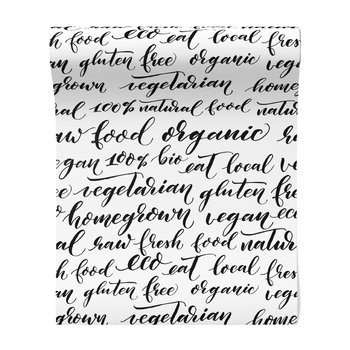 fresh food eco eat local fresh
gluten free organic
grown vegetarian homegr
al 100% natural food na
aw food organic ra
egan 100% bio eat local ve
e vegetarian gluten fr
o homegrown vegan eco
al raw fresh food natur
h food eco eat local fresh
n gluten free organic v
own vegetarian home